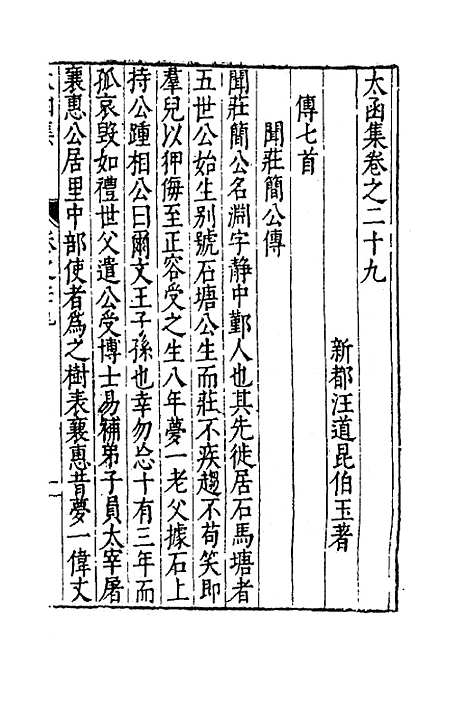 太函集卷之二十九
新都汪道昆伯玉著
傳七首
聞莊簡公傳
聞莊簡公名淵字靜中鄞人也其先徙居石馬塘者
五世公始生别號石塘公生而莊不疾趨不苟笑即
羣兒以狎侮至正容受之生八年夢一老父據石上
持公踵相公曰爾文王子孫也幸勿忘十有三年而
孤哀毀如禮世父遣公受博士易補弟子員太宰屠
襄惠公居里中部使者爲之樹表襄惠昔夢一偉丈